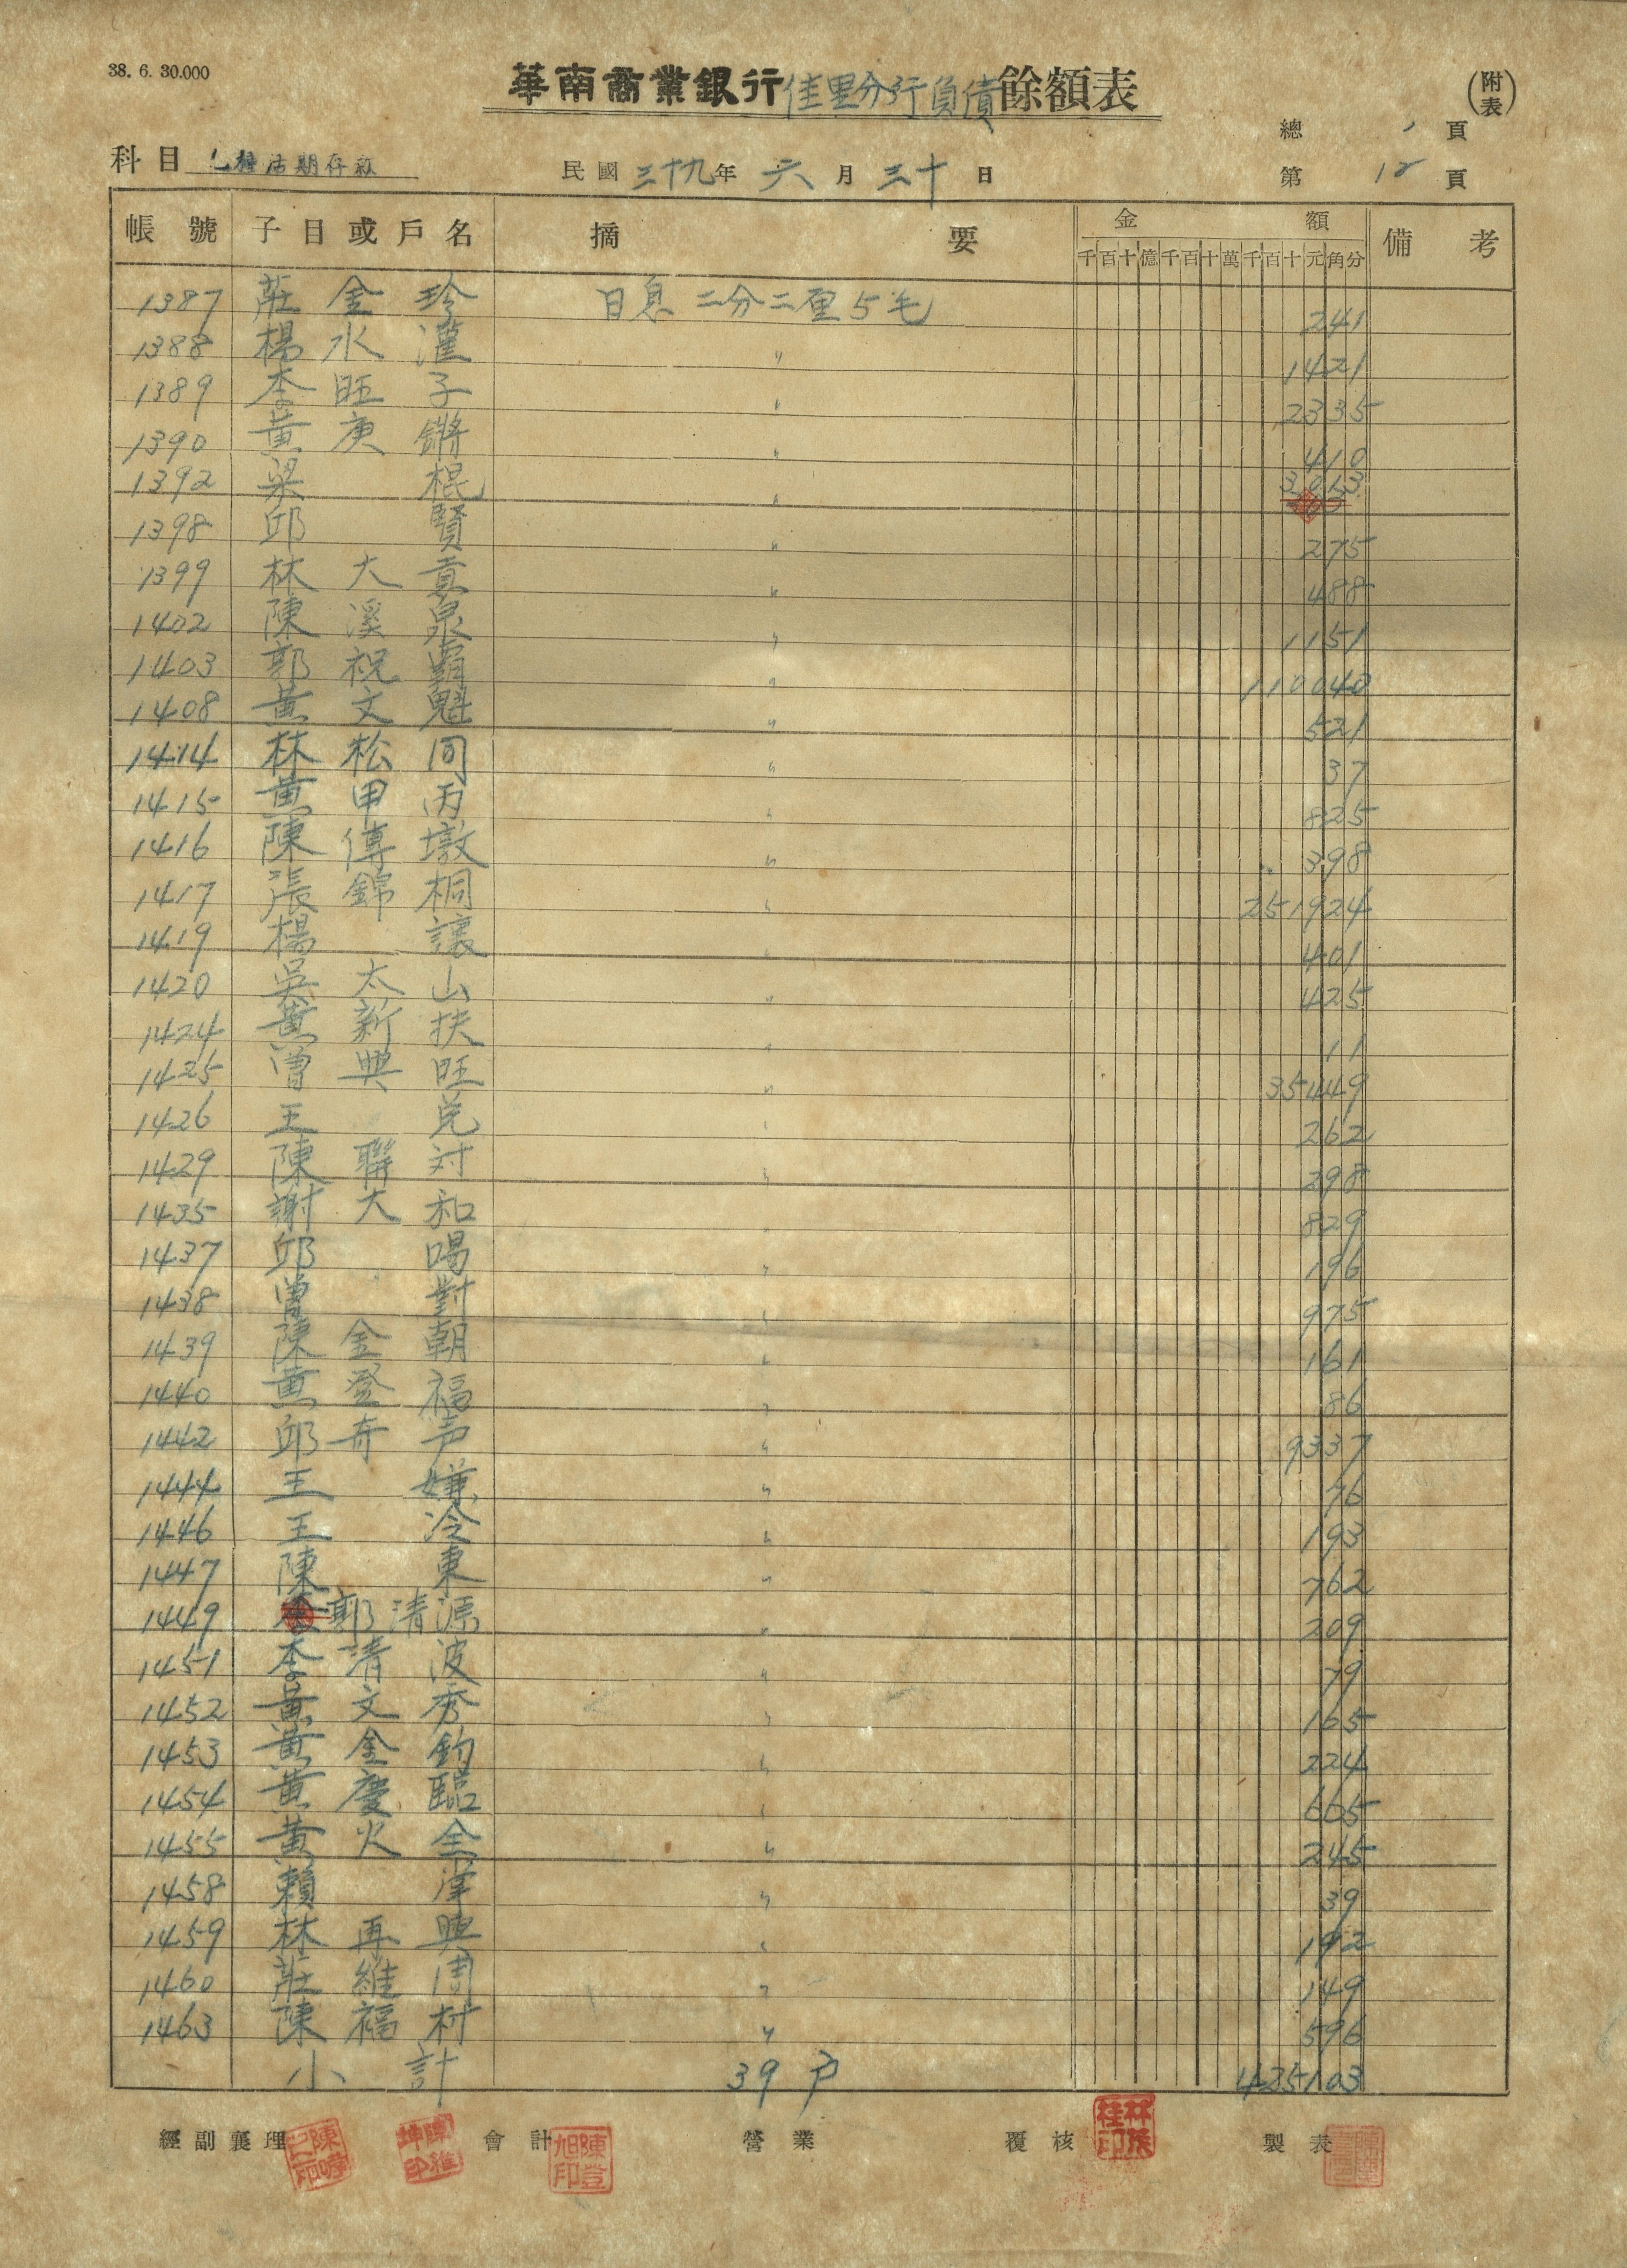 38. 6. 30.000
華南商業銀行佳里分行負債餘額表
(附表)
總 1 頁
科目 乙種活期存款 民國三十九年六月三十日 第 12 頁
帳號 子目或戶名 摘要 金額 備考
千百十億千百十萬千百十元角分
1387 莊金珍 日息二分二厘5毛 241
1388 楊水濯 〃 1421
1389 李旺子 〃 2335
1390 黃庚鏘 〃 410
1392 梁棍 〃 3013
1398 邱賢 〃 275
1399 林大貢 〃 488
1402 陳溪泉 〃 1151
1403 郭祝霸 〃 110040
1408 黃文魁 〃 521
1414 林松同 〃 37
1415 黃甲丙 〃 825
1416 陳傳墩 〃 398
1417 張錦桐 〃 251924
1419 楊讓 〃 401
1420 吳太山 〃 425
1424 黃新扶 〃 11
1425 曾興旺 〃 35449
1426 王兌 〃 262
1429 陳聯対 〃 298
1435 謝大和 〃 829
1437 邱喝 〃 196
1438 曾對 〃 975
1439 陳金朝 〃 161
1440 黃登福 〃 86
1442 邱奇声 〃 9337
1444 王嫌 〃 76
1446 王冷 〃 193
1447 陳東 〃 762
1449 郭清源 〃 209
1451 李清波 〃 79
1452 黃文秀 〃 165
1453 黃金鈞 〃 224
1454 黃慶臨 〃 665
1455 黃火全 〃 245
1458 賴漢 〃 39
1459 林再興 〃 192
1460 莊維周 〃 149
1463 陳福村 〃 596
小計 39戶 425103
經副襄理 會計 營業 覆核 製表
陳登旭印